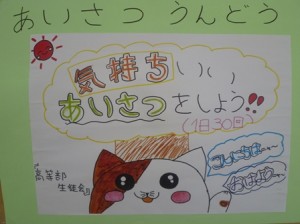 あいさつ うんどう
気持ちいい
あいさつをしよう!!
(1日30回)
こんにちは〜
おはよう〜
高等部
生徒会